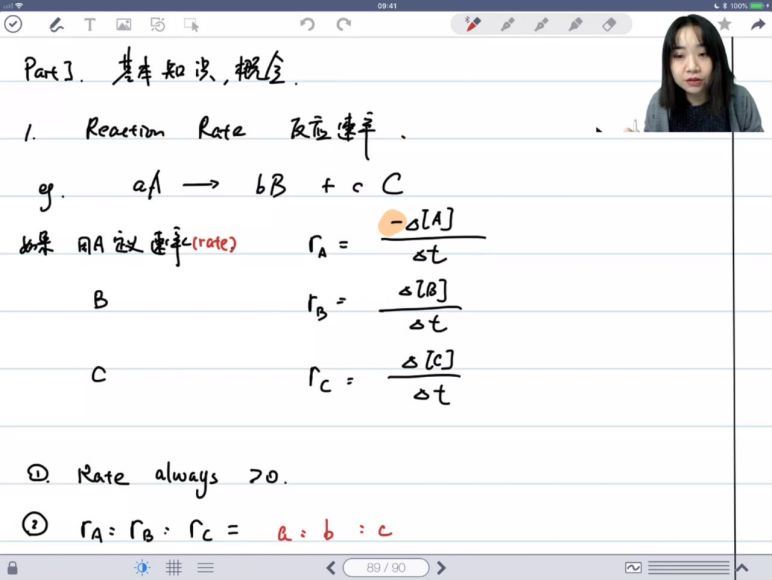 09:41
100%
T
Part I. 基本知识,概念.
1. Reaction Rate 反应速率.
eg. aA → bB + c C
如果 用A定义速率(rate) rA = -Δ[A]/Δt
B rB = Δ[B]/Δt
C rC = Δ[C]/Δt
①. Rate always >0.
② rA : rB : rC = a : b : c
89 / 90